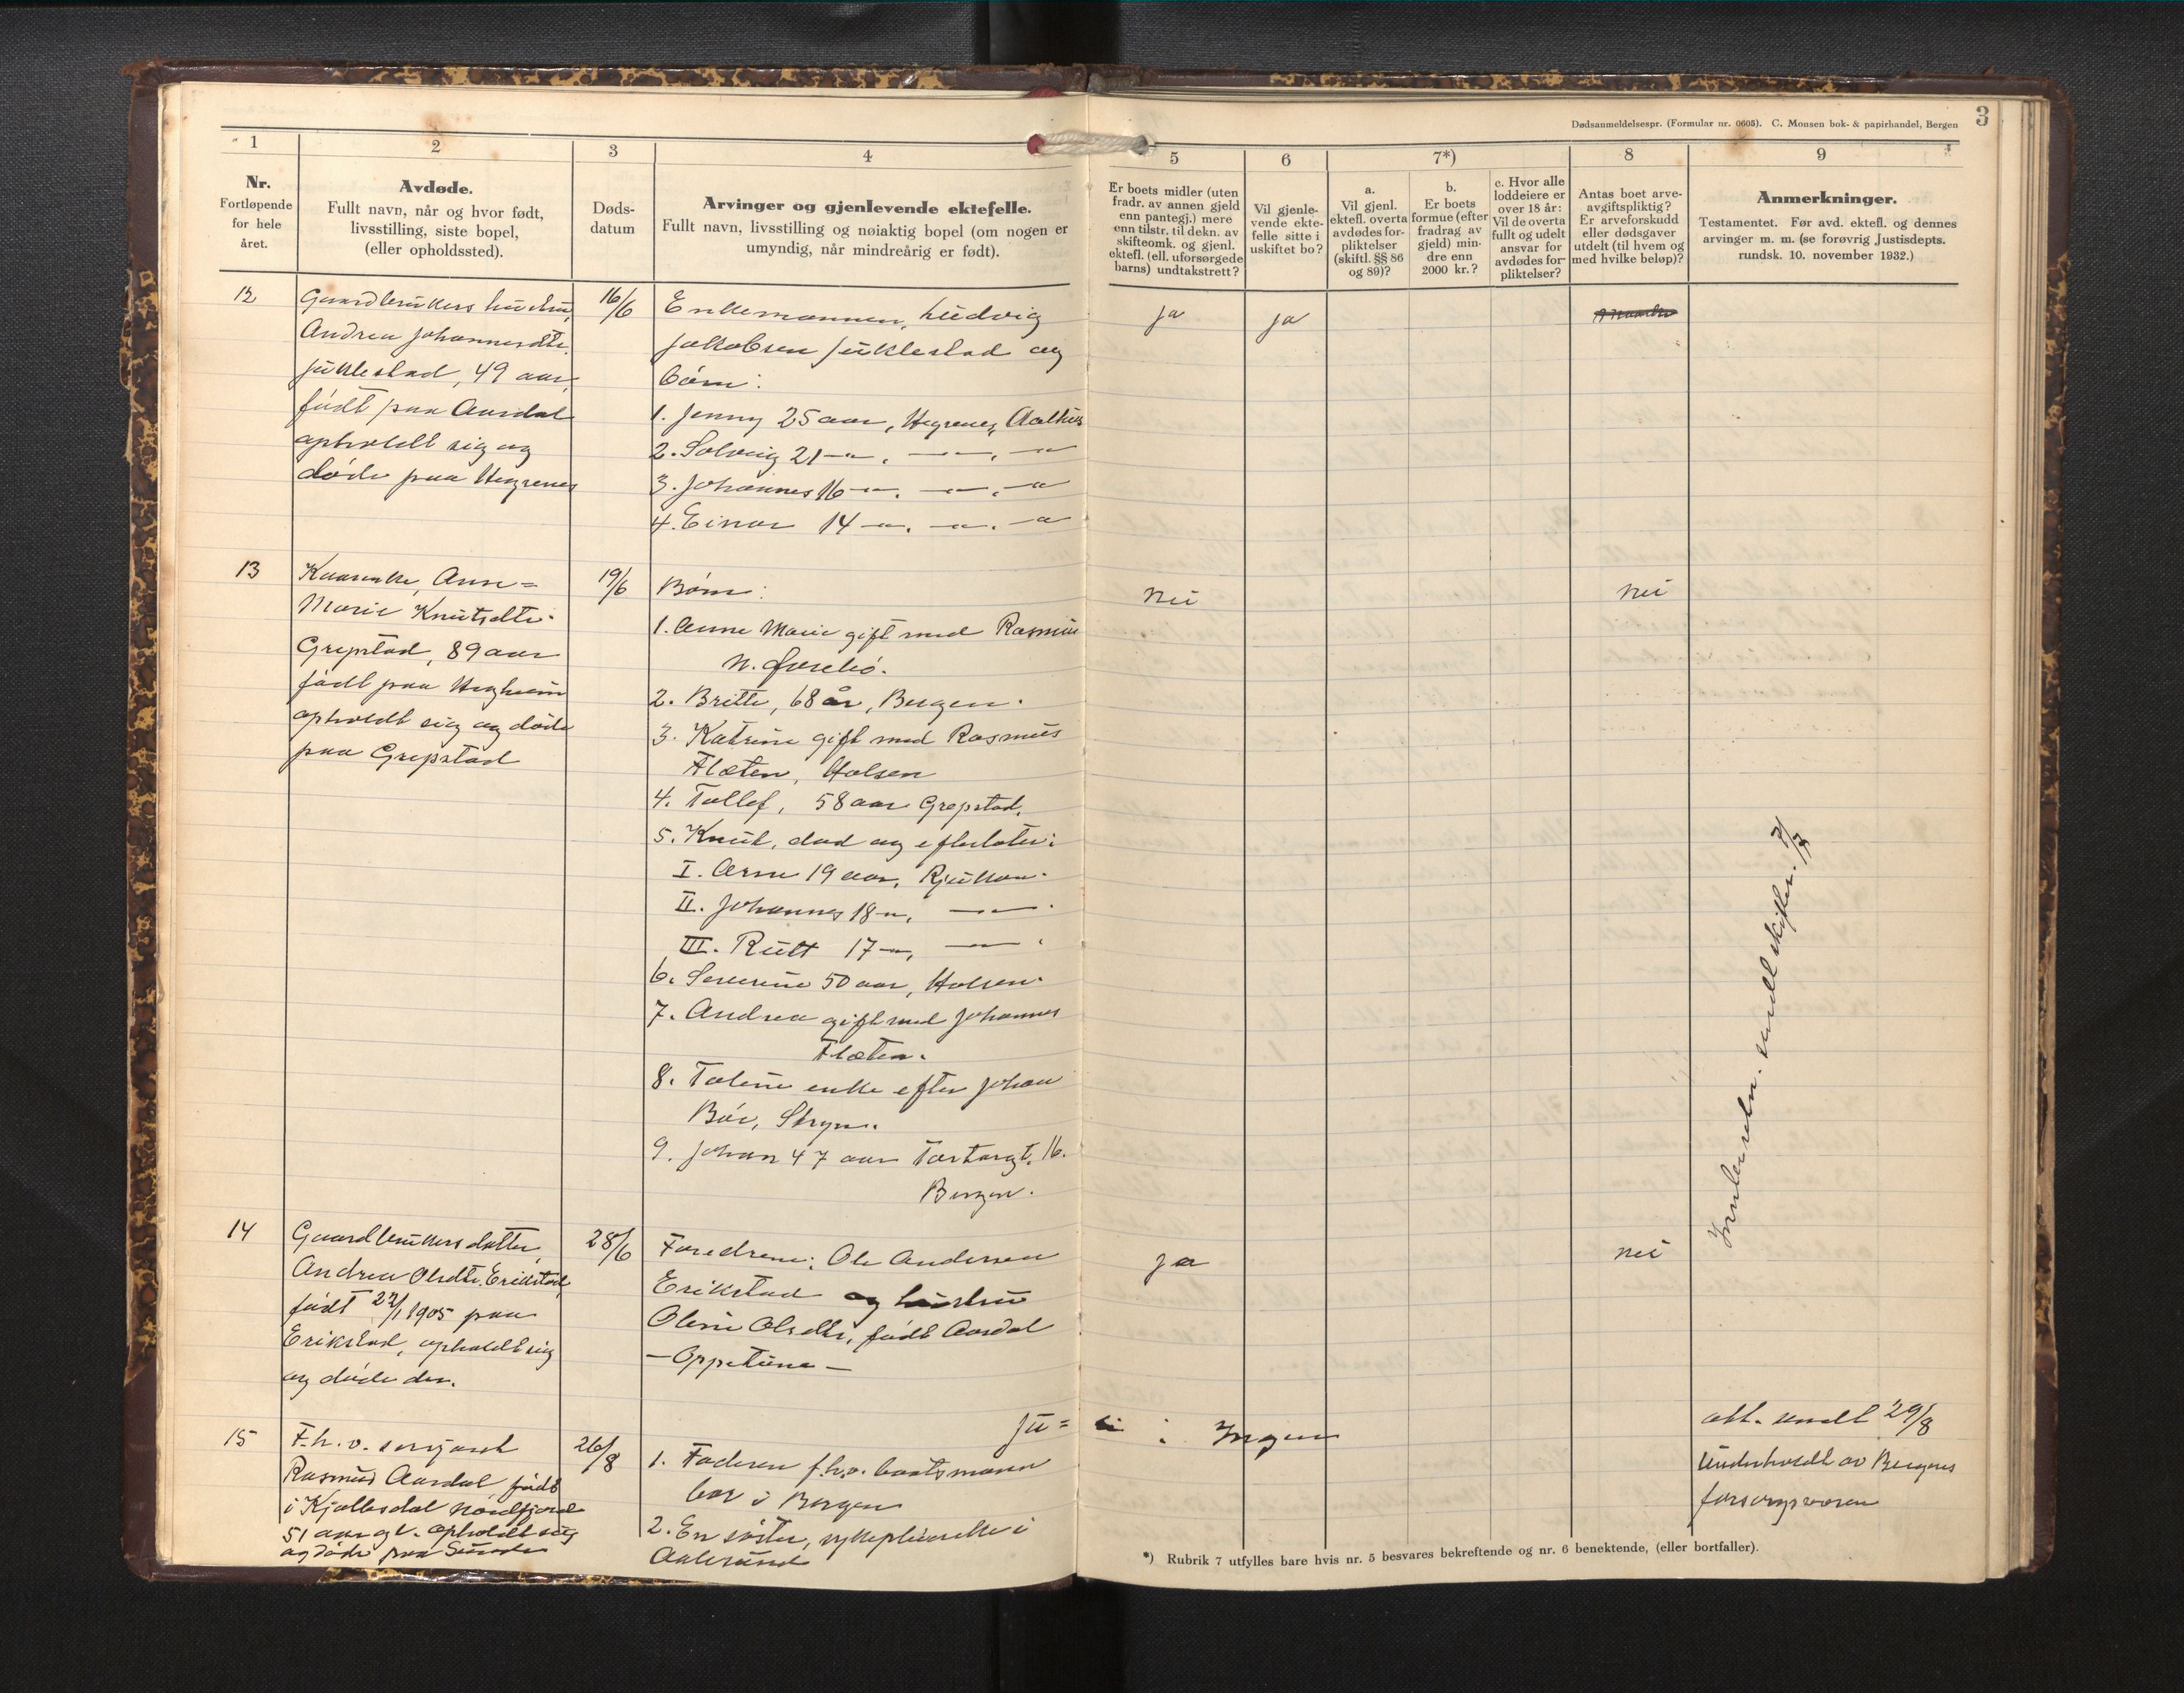 3
Dødsanmeldelsespr. (Formular nr. 0605). C. Monsen bok- & papirhandel, Bergen
1
Nr.
Fortløpende
for hele
året.
2
Avdøde.
Fullt navn, når og hvor født,
livsstilling, siste bopel,
(eller opholdssted).
3
Døds-
datum
4
Arvinger og gjenlevende ektefelle.
Fullt navn, livsstilling og nøiaktig bopel (om nogen er
umyndig, når mindreårig er født).
5
Er boets midler (uten
fradr. av annen gjeld
enn pantegj.) mere
enn tilstr. til dekn. av
skifteomk. og gjenl.
ektefl. (ell. uforsørgede
barns) undtakstrett?
6
Vil gjenle-
vende ekte-
felle sitte i
uskiftet bo?
7*)
a.
Vil gjenl.
ektefl. overta
avdødes for-
pliktelser
(skiftl. §§ 86
og 89)?
b.
Er boets
formue (efter
fradrag av
gjeld) min-
dre enn
2000 kr.?
c. Hvor alle
loddeiere er
over 18 år:
Vil de overta
fullt og udelt
ansvar for
avdødes for-
pliktelser?
8
Antas boet arve-
avgiftspliktig?
Er arveforskudd
eller dødsgaver
utdelt (til hvem og
med hvilke beløp)?
9
Anmerkninger.
Testamentet. Før avd. ektefl. og dennes
arvinger m. m. (se forøvrig Justisdepts.
rundsk. 10. november 1932.)
12
Gaardbrukers hustru,
Andrea Johannesdtr.
Juklestad, 49 aar,
født paa Aardal
opholdt sig og
døde paa Hegrenes
16/6
Enkemannen, Ludvig
Jakobsen Juklestad og
børn:
1. Jenny 25 aar, Hegrenes,
2. Solveig 21 —"—, —"—, —"
3. Johannes 16 —"—, —"—, —"
4. Einar 14 —"—, —"—, —"
ja
ja
13
Kaarenke, Anne=
Marie Knutsdtr.
Grepstad, 89 aar
født paa Hegheim
opholdt sig og døde
paa Grepstad
19/6
Børn:
1. Anne Marie gift med Rasmus
N.Førebø.
2. Britte, 68 år, Bergen.
3. Katrine gift med Rasmus
Flæten, Holsen
4. Tollef, 58 aar Grepstad.
5. Knut, død og efterlater:
I. Arne 19 aar, Rjukan.
II. Johannes 18 —"—, —"—.
III. Rutt 17 —"—, —"—.
6. Severine 50 aar, Holsen.
7. Andrea gift med Johannes
Flæten.
8. Taline enke efter Johan
Bøe, Stryn.
9. Johan 47 aar 16.
Bergen.
nei
nei
sendt skifter. 2/7
14
Gaardbrukersdatter,
Andrea Olsdtr. Erikstad,
født 22/1 1905 paa
Erikstad, opholdt sig
og døde der.
28/6
Foreldrene: Ole Andersen
Erikstad og hustru
Oline Olsdtr, født Aardal
— Oppetune —
ja
nei
15
F.h.v. serjant
Rasmus Aardal, født
i Kjøllesdal Nordfjord
51 aar gl. opholdt sig
og døde paa Sunde
26/8
1. Faderen f.h.v. baatsmann
bor i Bergen
2. En søster, sykepleierske i
Aalesund
Ju=
i: Ingen
att. sendt 29/8
Underholdt av Bergens
forsorgsvæsen
*) Rubrik 7 utfylles bare hvis nr. 5 besvares bekreftende og nr. 6 benektende, (eller bortfaller).